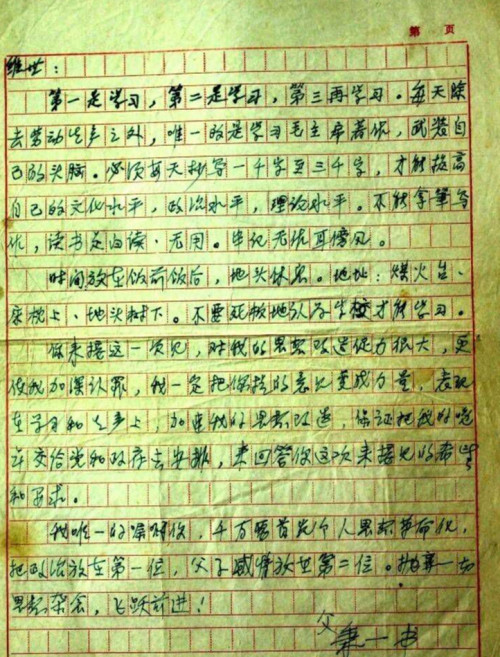 第 页
维世：
第一是学习，第二是学习，第三再学习。每天除
去劳动生产之外，唯一的是学习毛主席著作，武装自
己的头脑。必须每天抄写一千字至三千字，才能提高
自己的文化水平，政治水平，理论水平。不能拿笔写
作，读书是白读、无用。牢记无作耳傍风。
时间放在饭前饭后，地头休息。地址：煤火台、
床枕上、地头树下。不要死板地认为学校才能学习。
你来接这一次见，对我的思想改造促力很大，更
使我加深认罪，我一定把你提的意见变成力量，表现
在学习和生产上，加速我的思想改造，保证把我的
交给党和政府去安排，来回答你这次来接见的希望
和要求。
我唯一的嘱咐你，千万要首先个人思想革命化，
把政治放在第一位，父子感情放在第二位。抛弃一切
思想杂念，飞跃前进！
父
秉一书